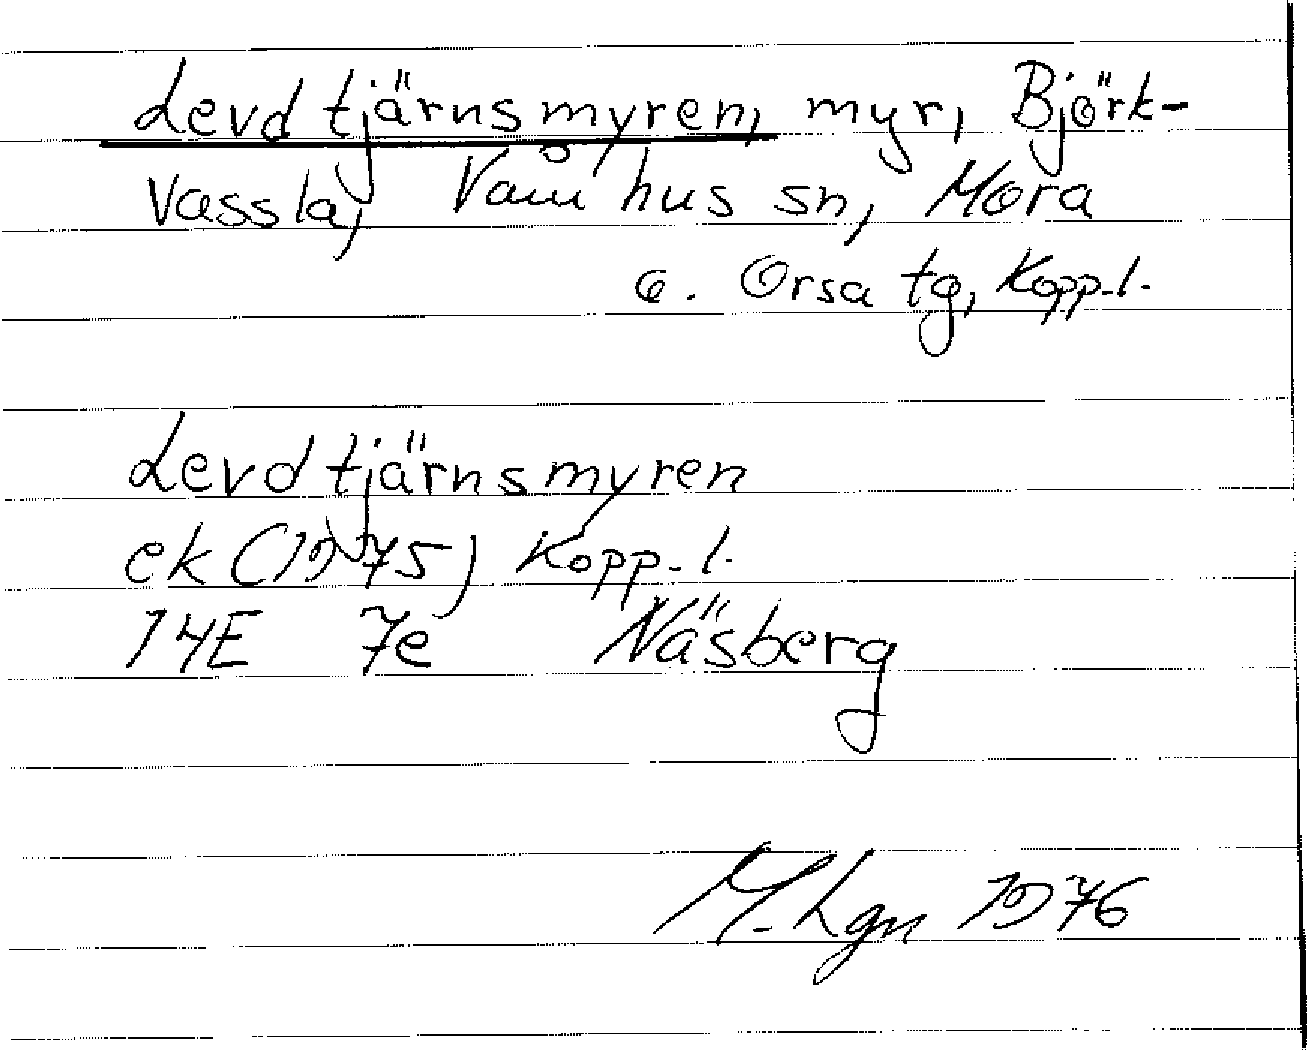 Levdtjärnsmyren, myr, Björk-
vassla, Våmhus sn, Mora
o. Orsa tg, Kopp.l.
Levdtjärnsmyren
ek (1975) Kopp.l.
14E 7e Näsberg
M. Lgn 1976